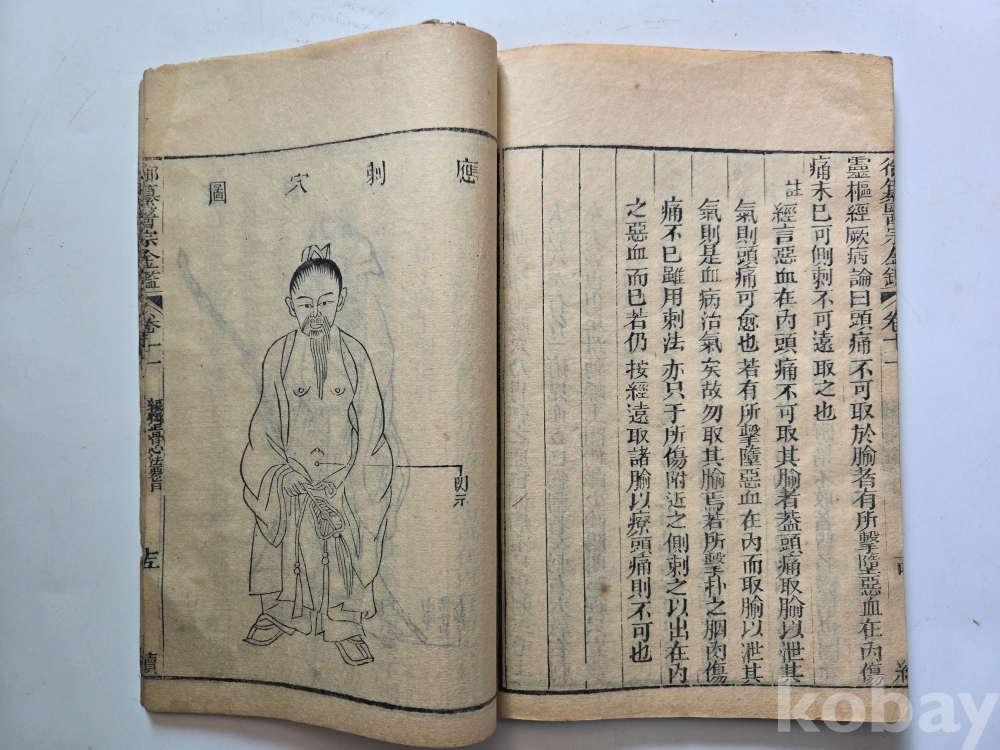 御纂醫宗金鑑 卷十一
靈樞經厥病論曰頭痛不可取於腧者有所擊墮惡血在內傷
痛未已可側刺不可遠取之也
註 經言惡血在內頭痛不可取其腧者葢頭痛取腧以泄其
氣則頭痛可愈也若有所擊墮惡血在內而取腧以泄其
氣則是血病治氣矣故勿取其腧焉若所擊扑之䐃肉傷
痛不已雖用刺法亦只于所傷附近之側刺之以出在內
之惡血而已若仍按經遠取諸腧以療頭痛則不可也
應刺穴圖
御纂醫宗金鑑 卷十一 正骨心法要旨
kobay